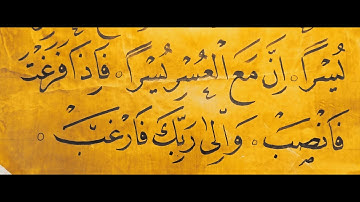 يُسْرًا ۝ اِنَّ مَعَ الْعُسْرِ يُسْرًا ۝ فَاِذَا فَرَغْتَ
فَانْصَبْ ۝ وَاِلٰى رَبِّكَ فَارْغَبْ ۝